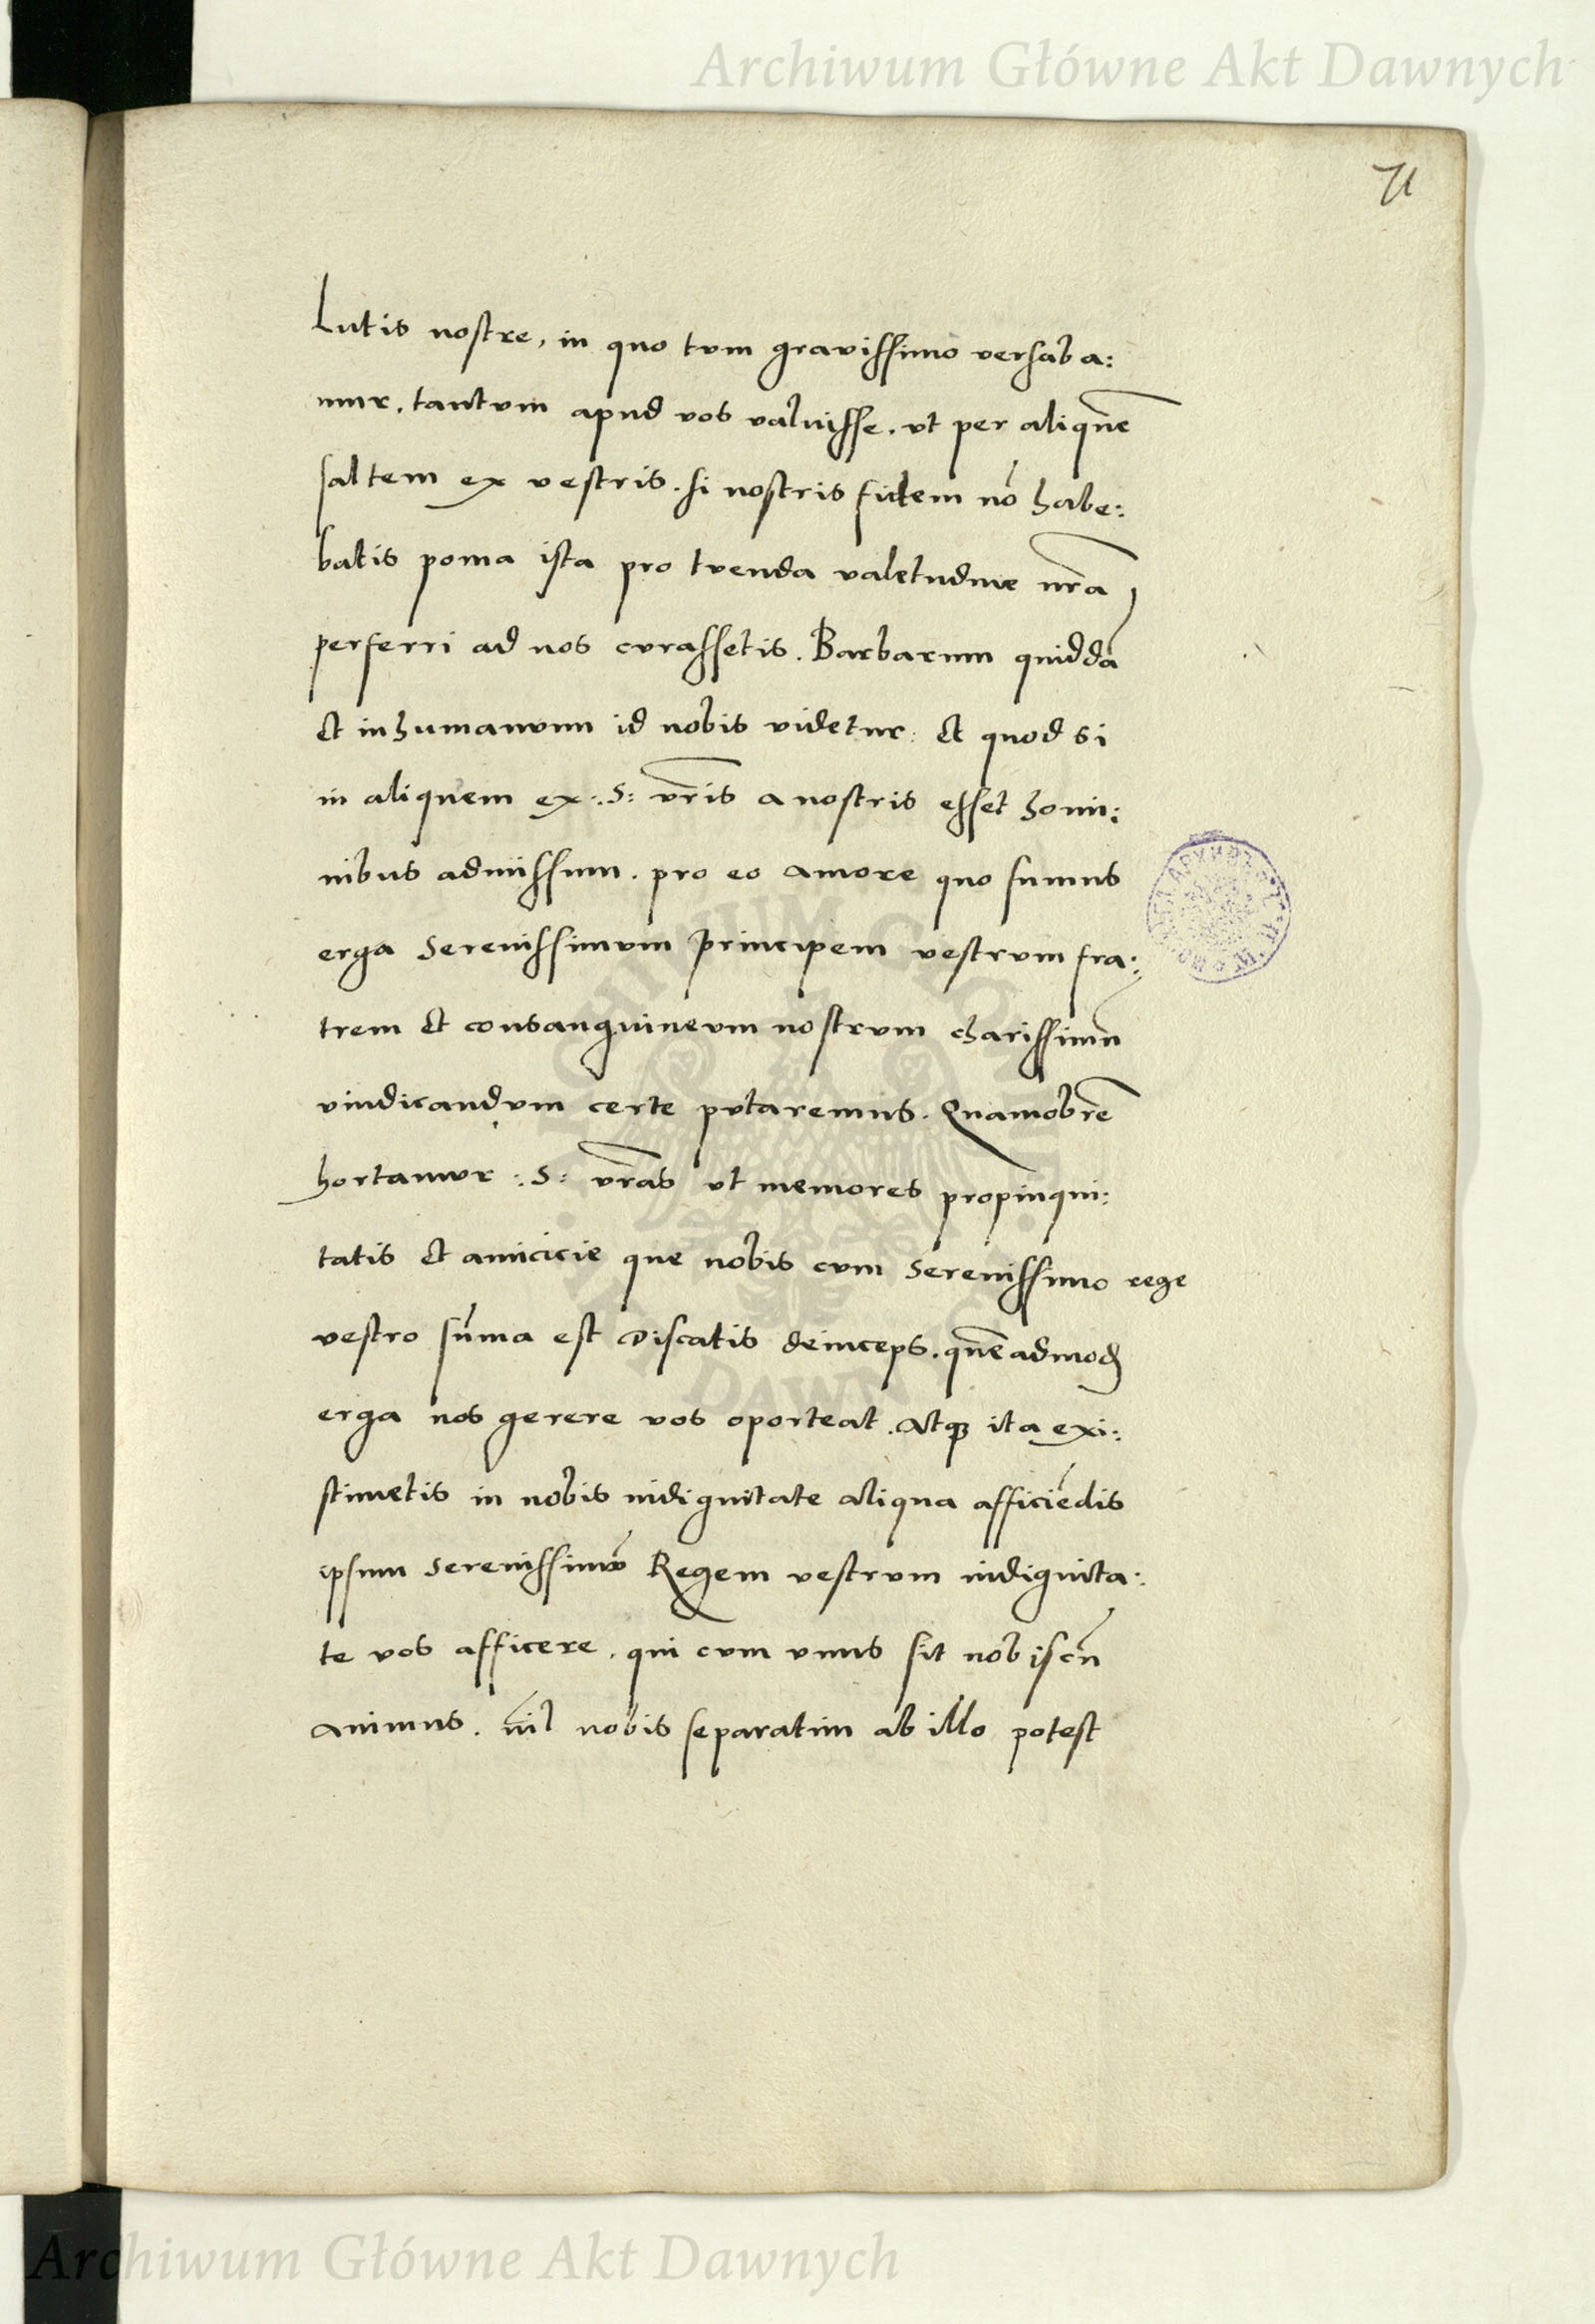 Archiwum Główne Akt Dawnych
71
lutis nostre, in quo tum gravissimo versaba:
mur. tantum apud vos valuisse. ut per aliquē
saltem ex vestris. si nostris fidem nō habe:
batis poma ista pro tuenda valetudine nr̄a
perferri ad nos curassetis. Barbarum quiddā
et inhumanum id nobis videtur: et quod si
in aliquem ex :S: vr̄is a nostris esset homi:
nibus admissum. pro eo amore quo sumus
erga Serenissimum principem vestrum fra:
trem et consanguineum nostrum charissimū
vindicandum certe putaremus. Quamobrē
hortamur :S: vr̄as ut memores propinqui:
tatis et amicicie que nobis cum Serenissimo rege
vestro sūma est Discatis deinceps. quēadmodū
erga nos gerere vos oporteat. Atqꝫ ita exi:
stimetis in nobis indignitate aliqua afficiēdis
ipsum Serenissimū Regem vestrum indignita:
te vos afficere. qui cum unus sit nobiscū
animus. nīl nobis separatim ab illo potest
Archiwum Główne Akt Dawnych